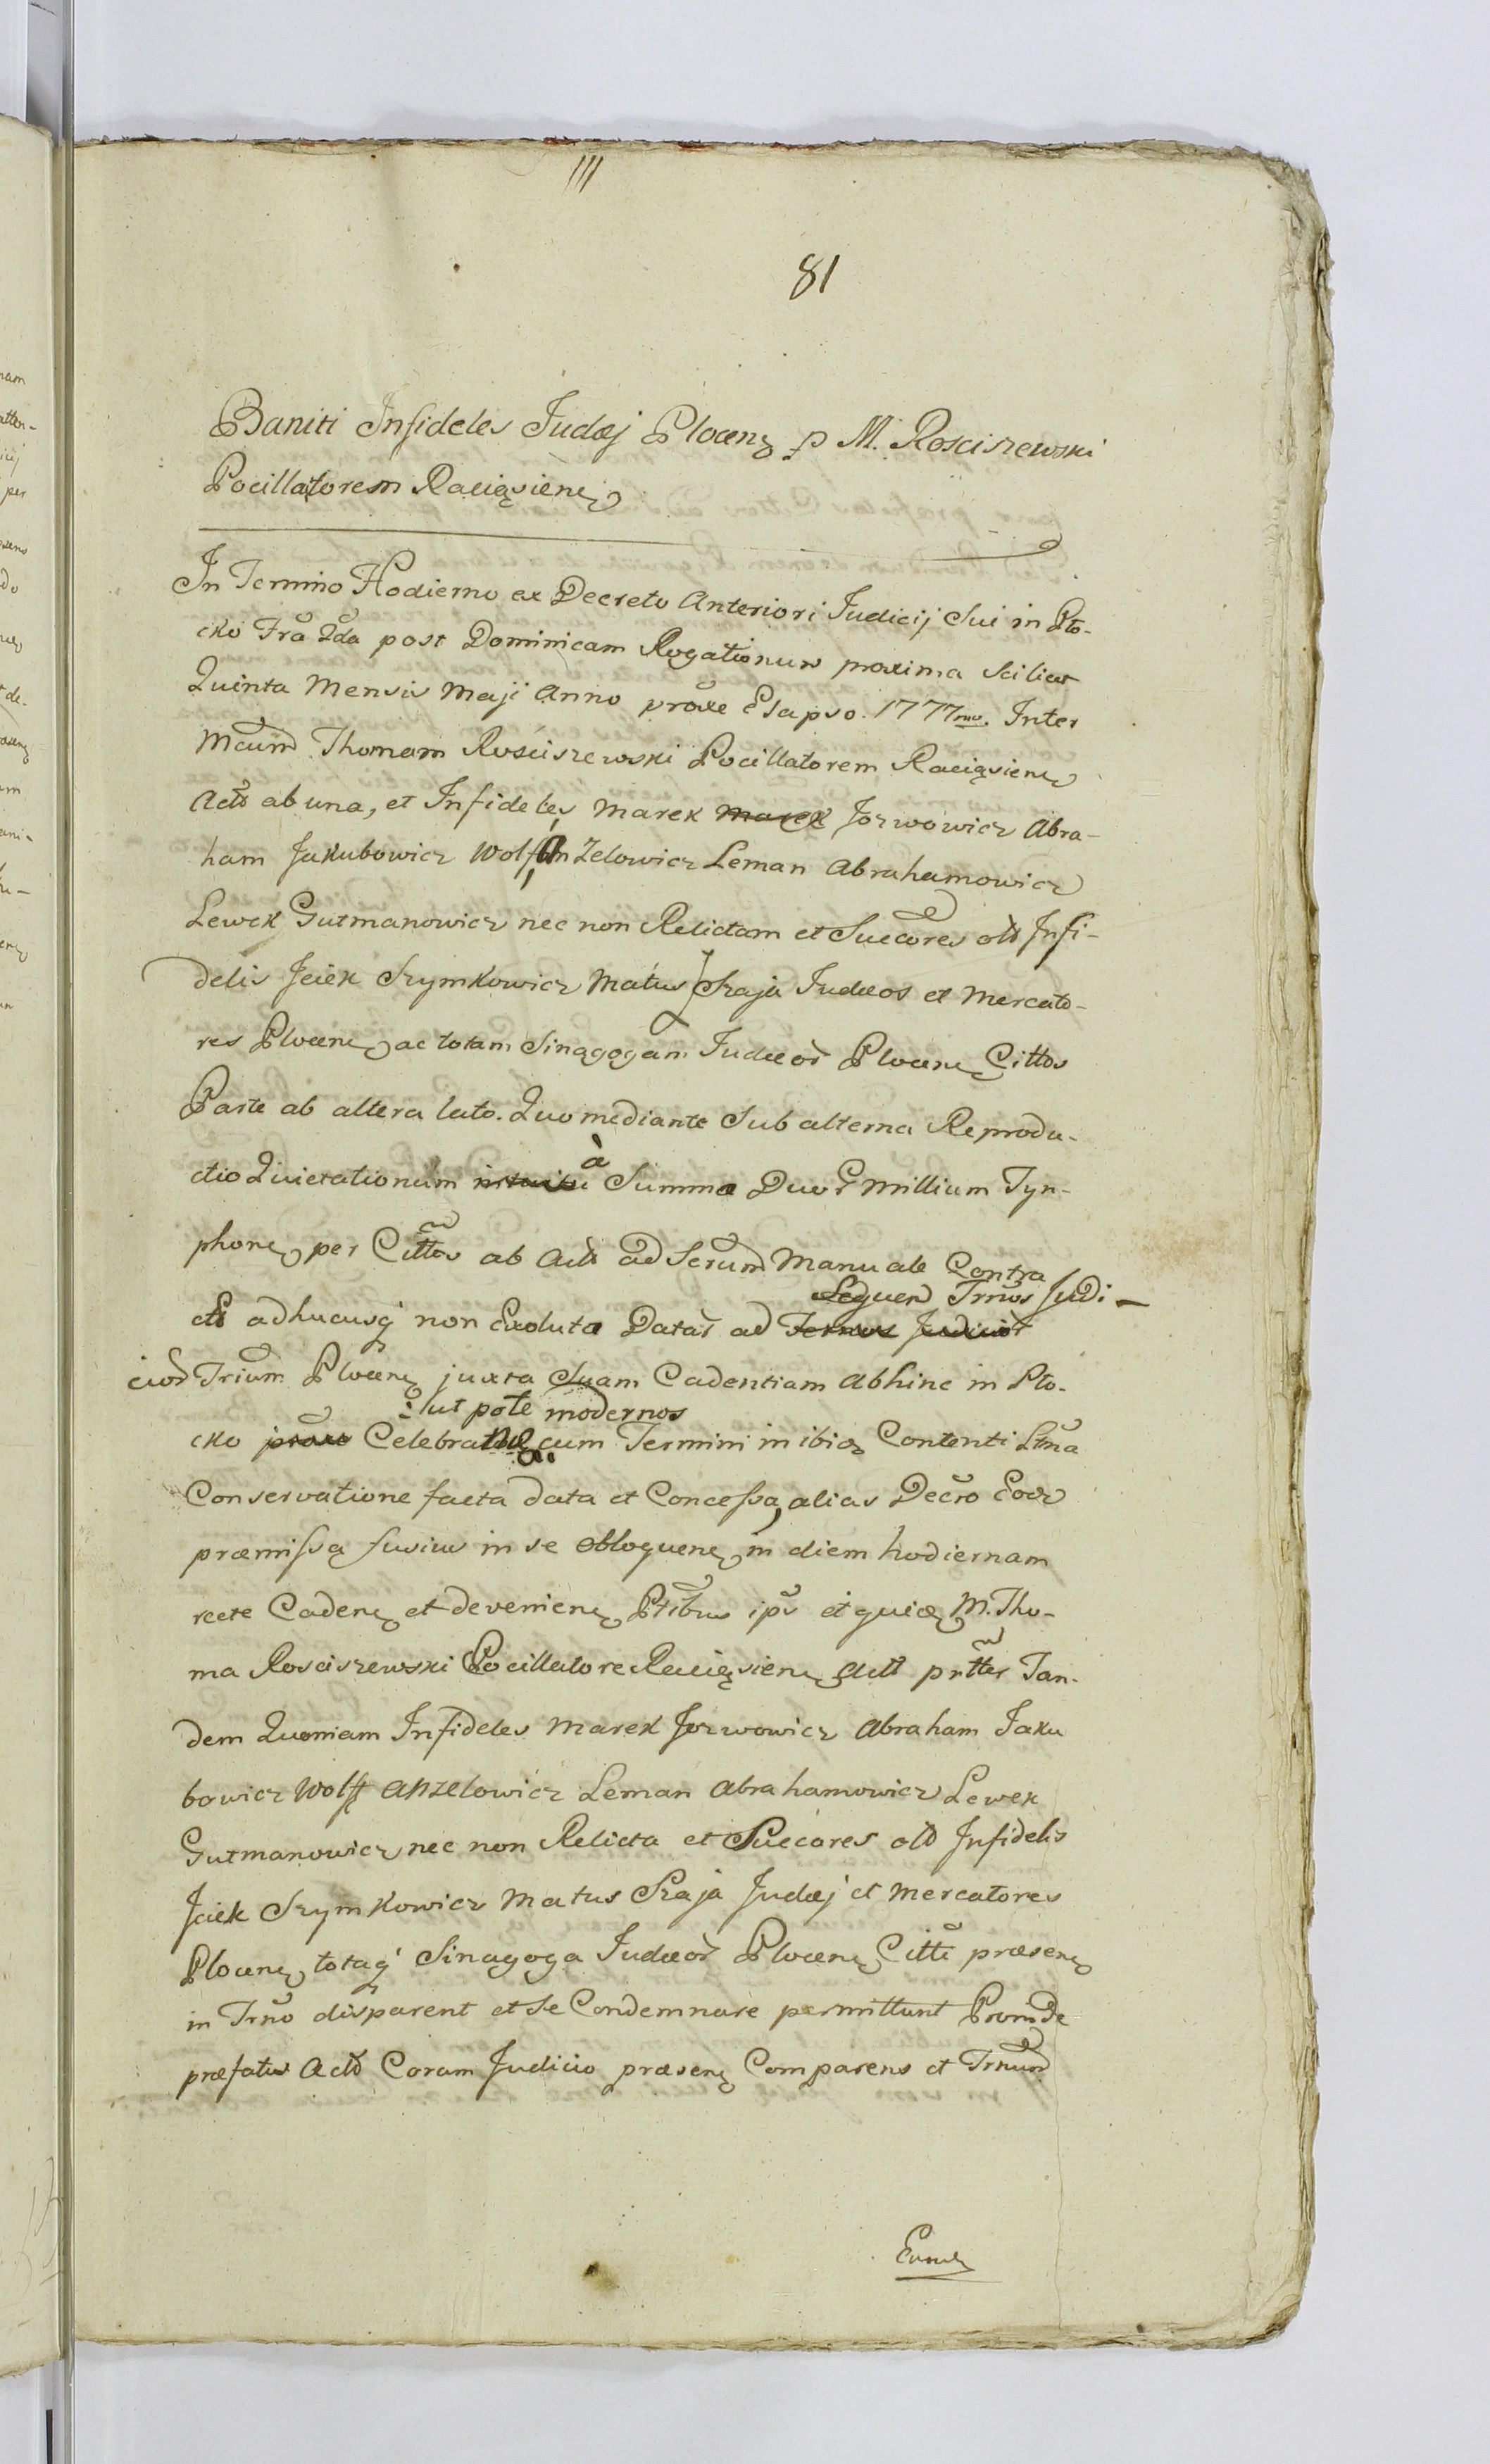 III
81
Baniti Infideles Judæj Plocen p M. Rosciszewski
Pocillatorem Raciązien
In Termino Hodierno ex Decreto Anteriori Judicij Sui in Pło-
cko Fra 2da post Dominicam Rogationum proxima Scilicet
Quinta Mensis Maji Anno proxe Elapso. 1777mo. Inter
Mcum Thomam Rosciszewski Pocillatorem Raciązien
Actt ab una, et Infideles Marek Marek Jozwowicz Abra-
ham Jakubowicz Wolff Anzelowicz Leman Abrahamowicz
Lewek Gutmanowicz nec non Relictam et Succores olt Infi-
delis Jciek Szymkowicz Matus Szaja Judæos et Mercato-
res Plocen ac totam Sinagogam Judæor Plocen Cittos
Parte ab altera lato. Quo mediante Sub alterna Reprodu-
ctio Quietationum à Summa Duor Millium Tyn-
phon per Cittos ab Actt ad Serum Manuale Contra
Sequen Trnos Judi-
ctt adhucusq non Exoluta Datar ad Ternos Judicior
cior Trium Plocen juxta Suam Cadentiam Abhinc in Pło-
ut pote modernos
cko proxe Celebran cum Termini in ibid Contenti Ltma
Conservatione facta data et Concessa, alias Decro Eodr
præmissa fusius in se Obloquen in diem hodiernam
recte Caden et devenien Ptibus ips et quid M. Tho-
ma Rosciszewski Pocillatore Raciązien Actt prtter Tan-
dem Quoniam Infideles Marek Jozwowicz Abraham Jaku
bowicz Wolff Anzelowicz Leman Abrahamowicz Lewek
Gutmanowicz nec non Relicta et Succores olt Infidelis
Jciek Szymkowicz Matus Szaja Judæj et Mercatores
Plocen totaq Sinagoga Judæor Plocen Citti præsen
in Trno disparent et Se Condemnare permittunt Proinde
præfatus Actt Coram Judicio præsen Comparens et Trnum